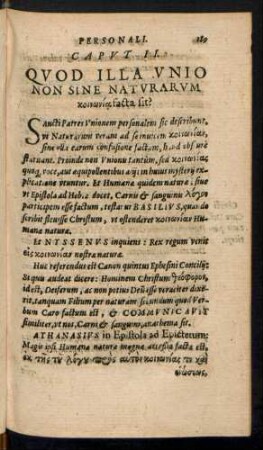 PERSONALI. 189
CAPVT II.
QVOD ILLA VNIO
NON SINE NATVRARVM
κοινωνίᾳ facta sit?
SAncti Patres Vnionem personalem sic describunt,
vt Naturarum veram ad se inuicem κοινωνίαν,
sine vlla earum confusione factam, haud obscurè
statuant. Proinde non Vnionis tantum, sed κοινωνίας
quoque, voce, aut aequipollentibus alijs in huius mysterij ex-
plicatione vtuntur. Et Humana quidem natura, sicut
vt Epistola ad Heb. 2. docet, Carnis & sanguinis Λόγον
participem esse factum, testatur BASILIVS, quando
scribit ἐπιδημῆσαι Christum, vt ostenderet κοινωνίαν Hu-
manae naturae.
Et NYSSENVS inquiens: Rex regum venit
εἰς κοινωνίαν nostrae naturae.
Huc referendus est Canon quintus Ephesini Concilij:
Siquis audeat dicere: Hominem Christum θεοφόρον,
id est, Deiferum, ac non potius Deum esse veraciter dixe-
rit, tanquam Filium per naturam, secundum quod Ver-
bum Caro factum est, & COMMVNICAVIT
similiter, vt nos, Carni & sanguini, anathema sit.
ATHANASIVS in Epistola ad Epictetum:
Magis ipsi Humanae naturae magna accessio facta est,
ἐκ τῆς τοῦ λόγου πρὸς αὐτὸ κοινωνίας τε καὶ
ἑνώσεως,